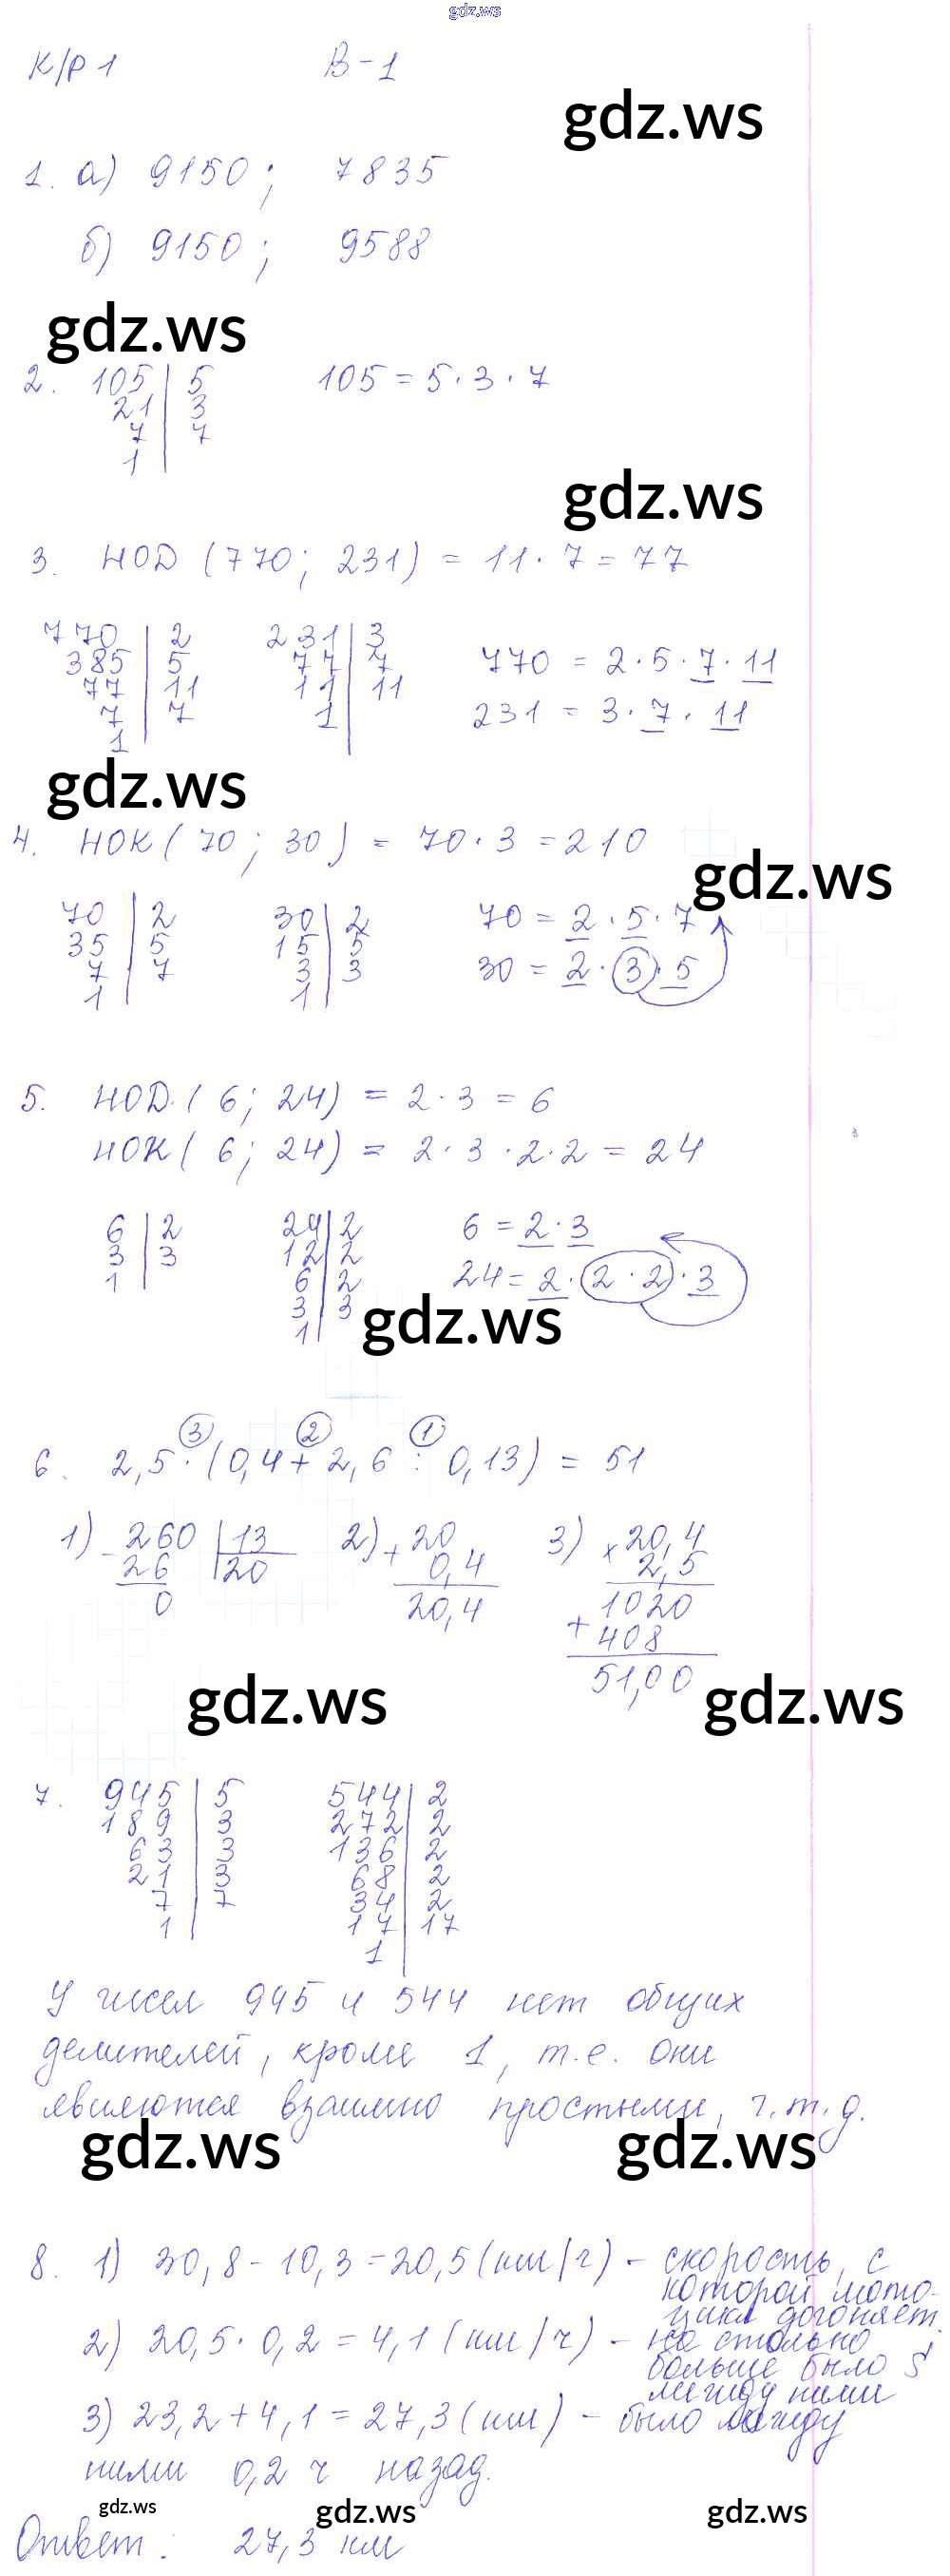 gdz.ws
К/Р 1 В-1
gdz.ws
1. а) 9150; 7835
б) 9150; 9588
gdz.ws
2. 105 | 5 105 = 5·3·7
21 | 3
7 | 7
1
gdz.ws
3. НОД (770; 231) = 11·7 = 77
770 | 2 231 | 3
385 | 5 77 | 7 770 = 2·5·7·11
77 | 11 11 | 11
7 | 7 1 231 = 3·7·11
1
gdz.ws
4. НОК (70; 30) = 70·3 = 210
gdz.ws
70 | 2 30 | 2 70 = 2·5·7
35 | 5 15 | 5
7 | 7 3 | 3 30 = 2·3·5
1 1
5. НОД (6; 24) = 2·3 = 6
НОК (6; 24) = 2·3·2·2 = 24
6 | 2 24 | 2 6 = 2·3
3 | 3 12 | 2
1 6 | 2 24 = 2·(2·2)·3
3 | 3
1
gdz.ws
3 2 1
6. 2,5·(0,4+2,6:0,13) = 51
1) -260 | 13 2) +20 3) ×20,4
26 | 20 0,4 2,5
0 20,4 1020
+ 408
51,00
gdz.ws gdz.ws
7. 945 | 5 544 | 2
189 | 3 272 | 2
63 | 3 136 | 2
21 | 3 68 | 2
7 | 7 34 | 2
1 17 | 17
1
У чисел 945 и 544 нет общих
делителей, кроме 1, т.е. они
являются взаимно простыми, ч.т.д.
gdz.ws gdz.ws
8. 1) 30,8 - 10,3 = 20,5 (км/ч) - скорость, с
которой мото-
цикл догоняет.
2) 20,5·0,2 = 4,1 (км/ч) - на столько
больше было S
между ними
3) 23,2 + 4,1 = 27,3 (км) - было между
ними 0,2 ч назад.
gdz.ws gdz.ws gdz.ws
Ответ: 27,3 км